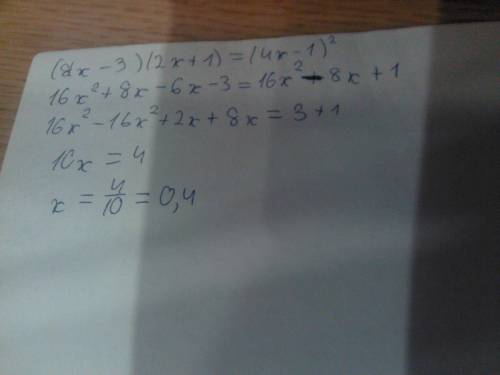 (8x - 3)(2x + 1) = (4x - 1)²
16x² + 8x - 6x - 3 = 16x² - 8x + 1
16x² - 16x² + 2x + 8x = 3 + 1
10x = 4
x = 4/10 = 0,4